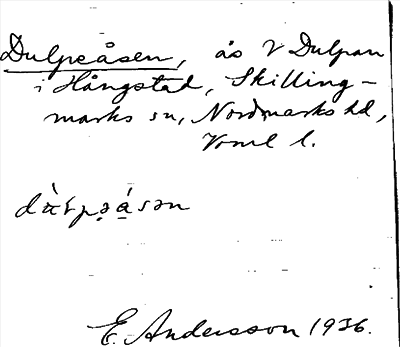 Dulpeåsen, ås V Dulpan
i Hångstad, Skilling-
marks sn, Nordmarks hd,
Vrml l.
E. Andersson 1936.